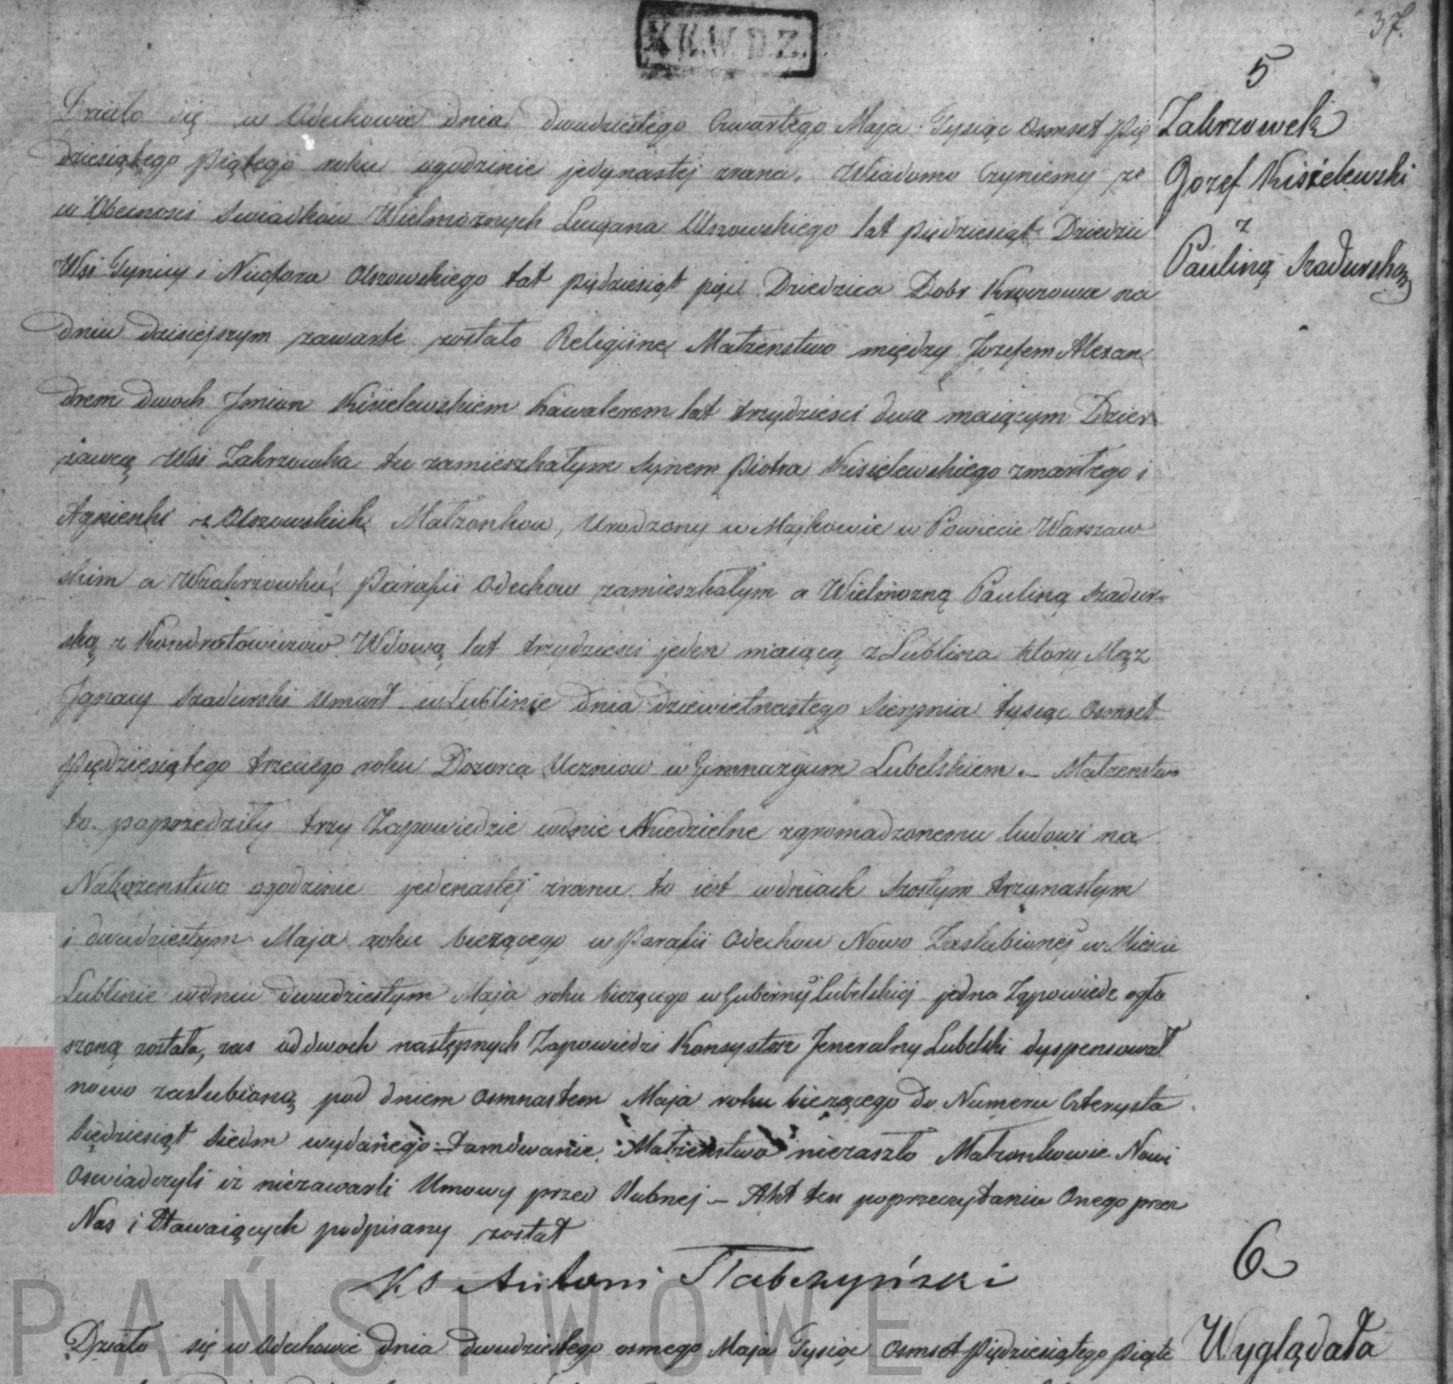 37.
K.K.W.D.Z.
5
Zakrzowek
Jozef Kisielewski
z
Pauliną Szadurską
Działo się w Odechowie dnia dwudziestego Czwartego Maja Tysiąc Osmset Pię
dziesiątego Piątego roku ogodzinie jedynastej zrana. Wiadomo Czyniemy że
w Obecnosci Swiadków Wielmożnych Lucyana Olszowskiego lat piędziesiąt Dziedzic
Wsi Gynicy i Nuctora Olszowskiego lat piędziesiąt pięć Dziedzica Dobr Kręczowa na
dniu dzisiejszym zawarte zostało Religijne Małżenstwo między Jozefem Alexan
drem dwoch Jmion Kisielewskiem Kawalerem lat trzydziesci dwa maiącym Dzier
żawcą Wsi Zakrzowka tu zamieszkałym synem Piotra Kisielewskiego zmarłego i
Agnieszki z Olszowskich Małżonkow, Urodzony w Majkowie w Powiecie Warszaw
skim a Wzakrzowku Parafii Odechow zamieszkałym a Wielmożną Pauliną Szadur-
ską z Kondratowiczow Wdową lat trzydziesci jeden maiącą z Lublina ktory Mąż
Jgnacy Szadurski Umarł w Lublinie dnia dziewietnastego Sierpnia tysiąc osmset
piędziesiątego trzeciego roku Dozorca Uczniow w Gimnazyum Lubelskiem. – Małżenstwo
to poprzedziły trzy Zapowiedzie wdnie Niedzielne zgromadzonemu ludowi na
Nabożenstwo ogodzinie jedenastej zrana to iest wdniach szostym trzynastym
i dwudziestym Maja roku bieżącego w Parafii Odechow Nowo Zaslubionej w Miescie
Lublinie wdniu dwudziestym Maja roku bieżącego w Gubernij Lubelskiej jedna Zapowiedz ogło
szoną została, zas od dwoch następnych Zapowiedzi Konsystorz Jeneralny Lubelski dyspensował
nowo zaslubioną pod dniem osmnastem Maja roku bieżącego do Numeru Czterysta
siędziesiąt siedm wydanego Tamowanie Małżenstwa niezaszło Małżonkowie Nowi
Oswiadczyli iż niezawarli Umowy przed slubnej – Akt ten poprzeczytaniu Onego przez
Nas i Stawaiących podpisany został
Ks Antoni Słabczyński
6
Wyglądała
Działo się w Odechowie dnia dwudziestego osmego Maja Tysiąc Osmset Pięđziesiątego Piąte
PAŃSTWOWE